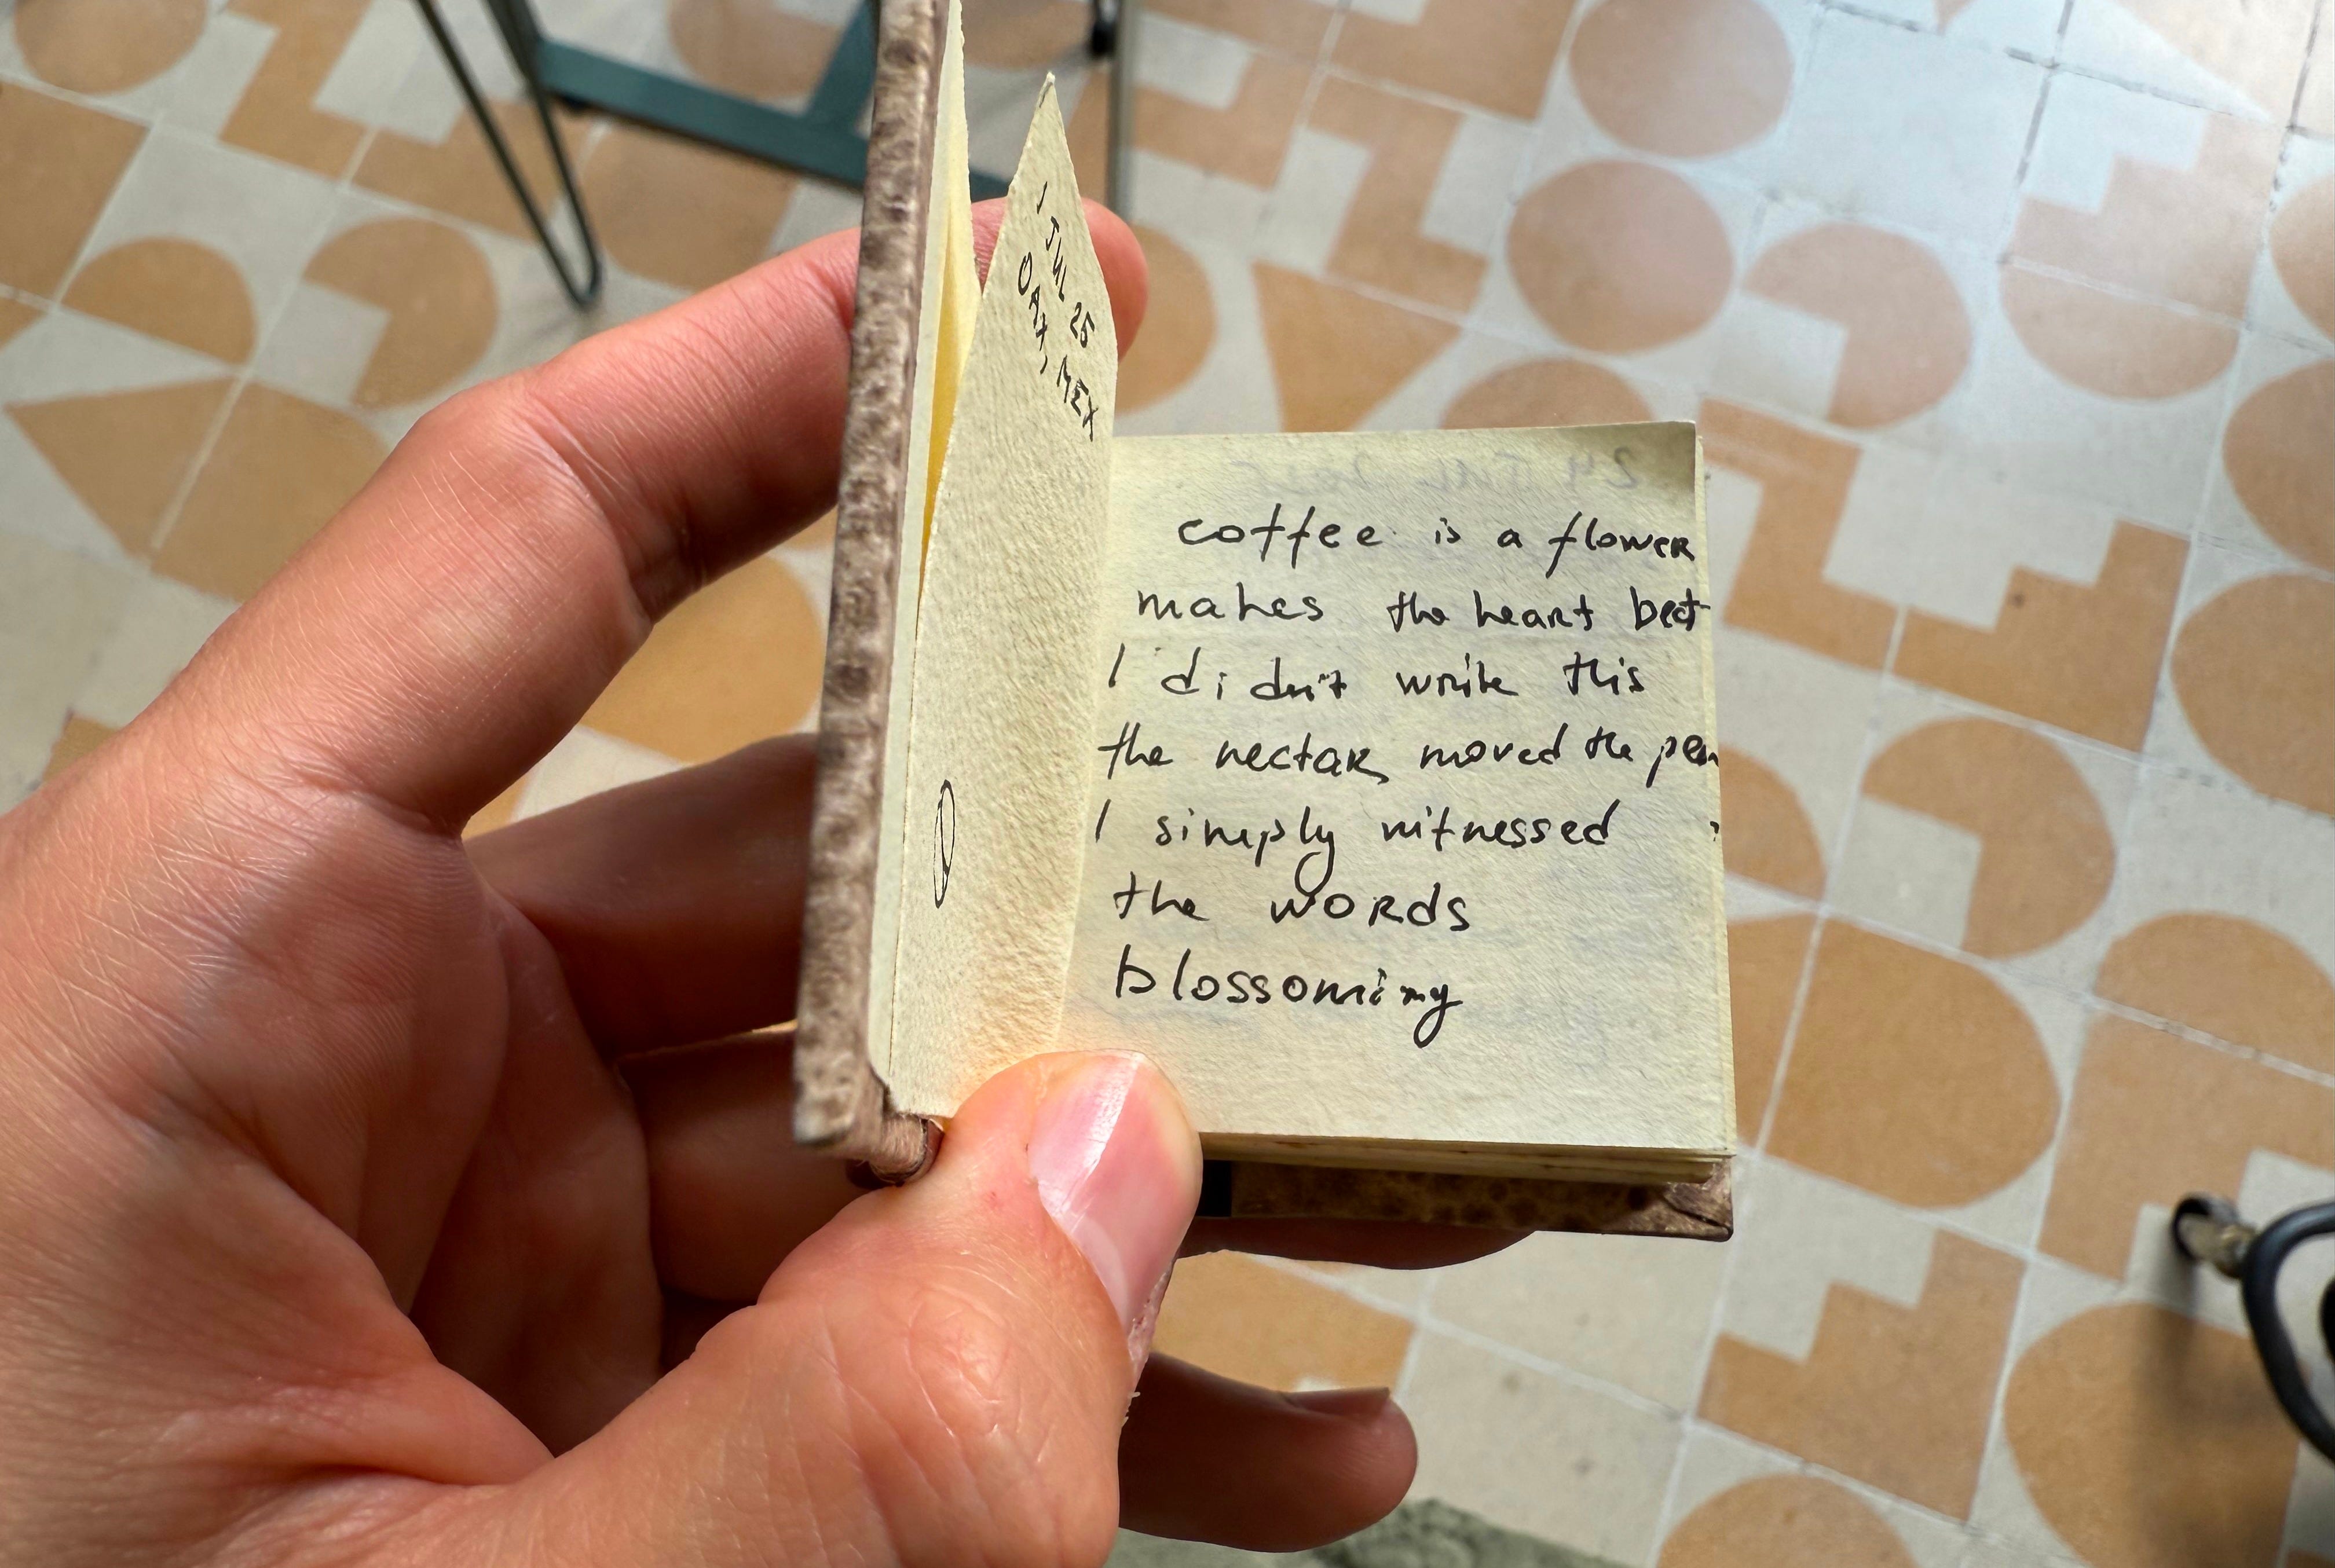 1 JUL 25
OAX, MEX
coffee is a flower
makes the heart beat
I didn't write this
the nectar moved the pen
I simply witnessed
the words
blossoming